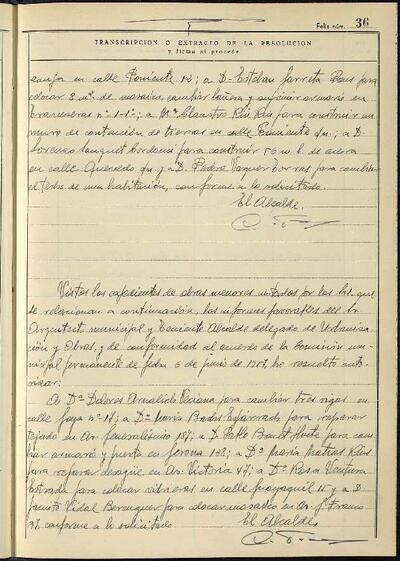 Folio núm. 36
TRANSCRIPCION O EXTRACTO DE LA RESOLUCION
y firma si procede
en calle Poniente 12; a D. Esteban Larreta Rius para
colocar 8 m². de mosaico, cambiar bañera y suprimir armario en
nº 1-1º; a Mª Claustro Rius Rius para construir un
muro de contención de tierras en calle s/n.; a D.
Lorenzo para construir 56 m. l. de acera
en calle Quevedo s/n. y a D. Pedro Vazquez Torras para cambiar
el techo de una habitación, conforme a lo solicitado.
El Alcalde,
Vistos los expedientes de obras menores instados por los Srs. que
se relacionan a continuación, los informes favorables del Sr.
Arquitecto municipal y Teniente Alcalde delegado de Urbaniza-
ción y Obras, y de conformidad al acuerdo de la Comisión mu-
nicipal permanente de fecha 5 de junio de 1957, he resuelto auto-
rizar:
A Dª Dolores para cambiar tres vigas en
calle Goya nº 17; a Dª María para reparar
tejado en Av. Generalísimo 187; a D. Pablo para cam-
biar armario y puerta en Gerona 138; a Dª María Matias Rius
para reparar desagüe en Av. Victoria 47; a Dª Rosa Ventura
Estrada para colocar vidrieras en calle Guayaquil 15 y a D.
Jacinto Vidal Berenguer para colocar mosaico en Av. G. Franco
97, conforme a lo solicitado.
El Alcalde,